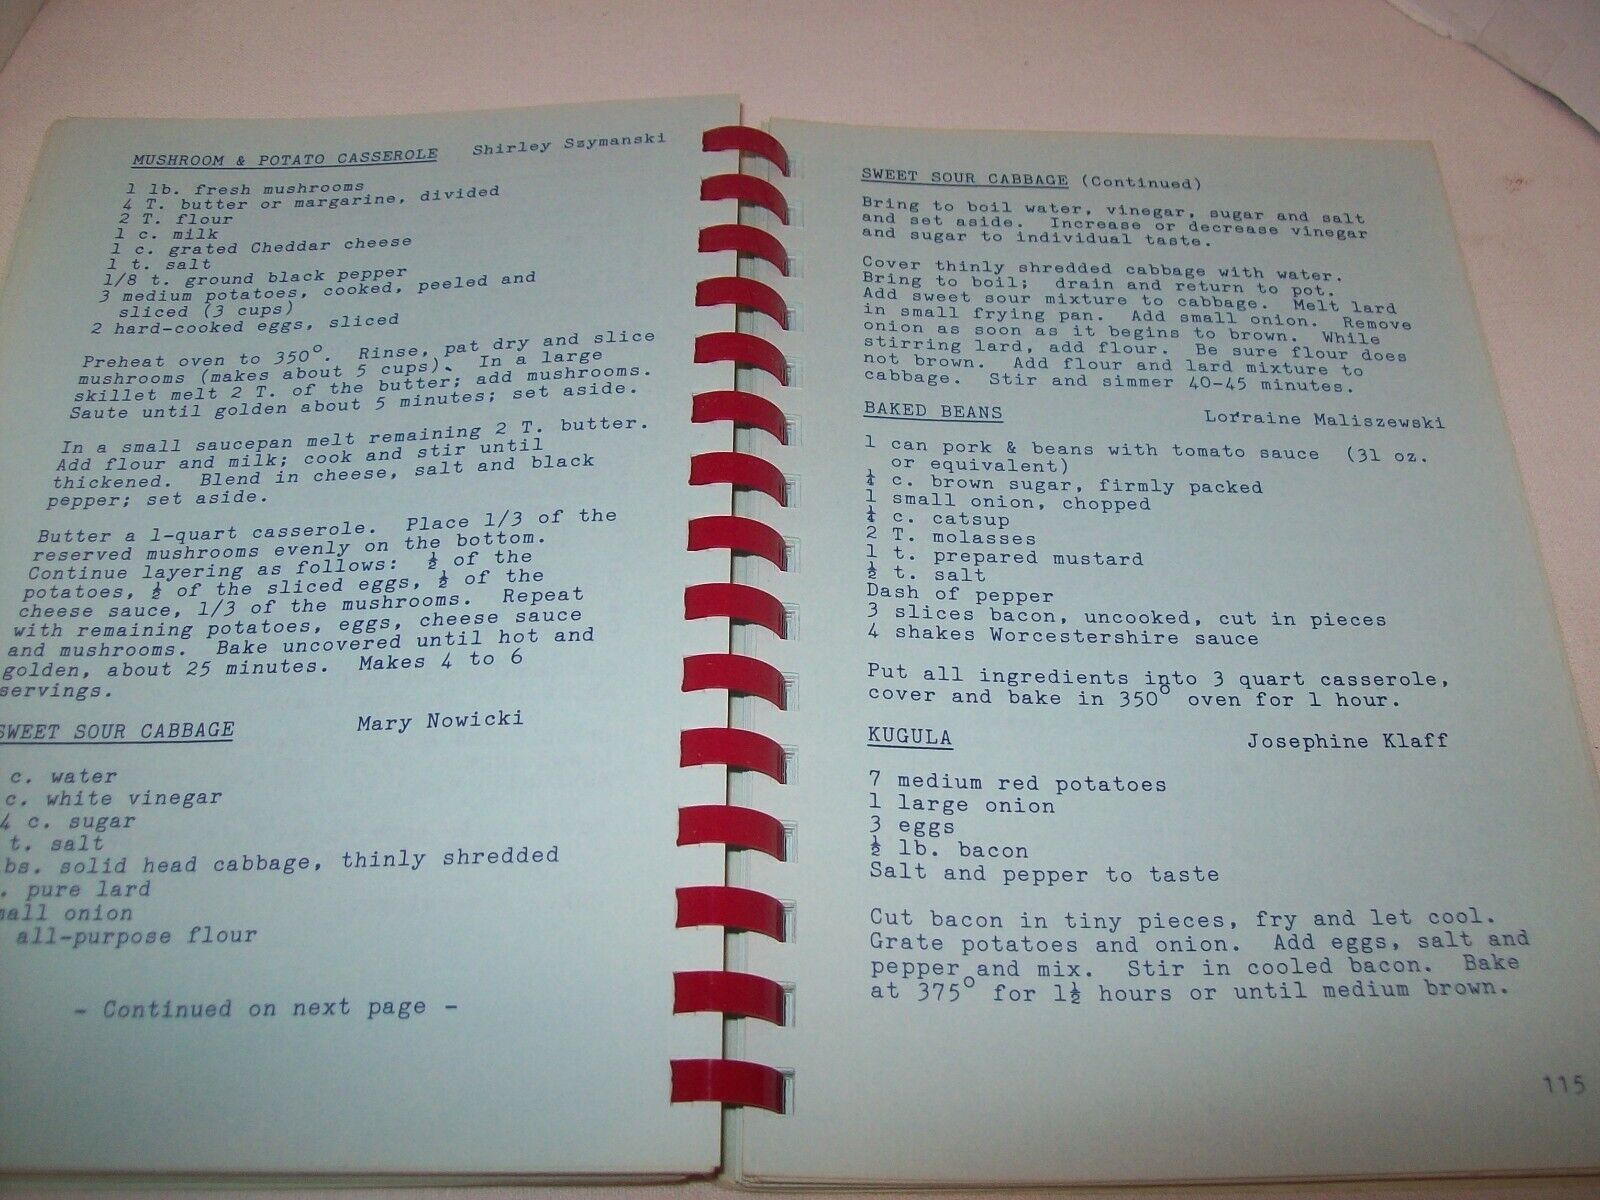 MUSHROOM & POTATO CASSEROLE Shirley Szymanski
1 lb. fresh mushrooms
4 T. butter or margarine, divided
2 T. flour
1 c. milk
1 c. grated Cheddar cheese
1 t. salt
1/8 t. ground black pepper
3 medium potatoes, cooked, peeled and
sliced (3 cups)
2 hard-cooked eggs, sliced
Preheat oven to 350°. Rinse, pat dry and slice
mushrooms (makes about 5 cups). In a large
skillet melt 2 T. of the butter; add mushrooms.
Saute until golden about 5 minutes; set aside.
In a small saucepan melt remaining 2 T. butter.
Add flour and milk; cook and stir until
thickened. Blend in cheese, salt and black
pepper; set aside.
Butter a 1-quart casserole. Place 1/3 of the
reserved mushrooms evenly on the bottom.
Continue layering as follows: ½ of the
potatoes, ½ of the sliced eggs, ½ of the
cheese sauce, 1/3 of the mushrooms. Repeat
with remaining potatoes, eggs, cheese sauce
and mushrooms. Bake uncovered until hot and
golden, about 25 minutes. Makes 4 to 6
servings.
SWEET SOUR CABBAGE Mary Nowicki
c. water
c. white vinegar
4 c. sugar
t. salt
bs. solid head cabbage, thinly shredded
. pure lard
mall onion
all-purpose flour
- Continued on next page -
SWEET SOUR CABBAGE (Continued)
Bring to boil water, vinegar, sugar and salt
and set aside. Increase or decrease vinegar
and sugar to individual taste.
Cover thinly shredded cabbage with water.
Bring to boil; drain and return to pot.
Add sweet sour mixture to cabbage. Melt lard
in small frying pan. Add small onion. Remove
onion as soon as it begins to brown. While
stirring lard, add flour. Be sure flour does
not brown. Add flour and lard mixture to
cabbage. Stir and simmer 40-45 minutes.
BAKED BEANS Lorraine Maliszewski
1 can pork & beans with tomato sauce (31 oz.
or equivalent)
¼ c. brown sugar, firmly packed
1 small onion, chopped
¼ c. catsup
2 T. molasses
1 t. prepared mustard
½ t. salt
Dash of pepper
3 slices bacon, uncooked, cut in pieces
4 shakes Worcestershire sauce
Put all ingredients into 3 quart casserole,
cover and bake in 350° oven for 1 hour.
KUGULA Josephine Klaff
7 medium red potatoes
1 large onion
3 eggs
½ lb. bacon
Salt and pepper to taste
Cut bacon in tiny pieces, fry and let cool.
Grate potatoes and onion. Add eggs, salt and
pepper and mix. Stir in cooled bacon. Bake
at 375° for 1½ hours or until medium brown.
115